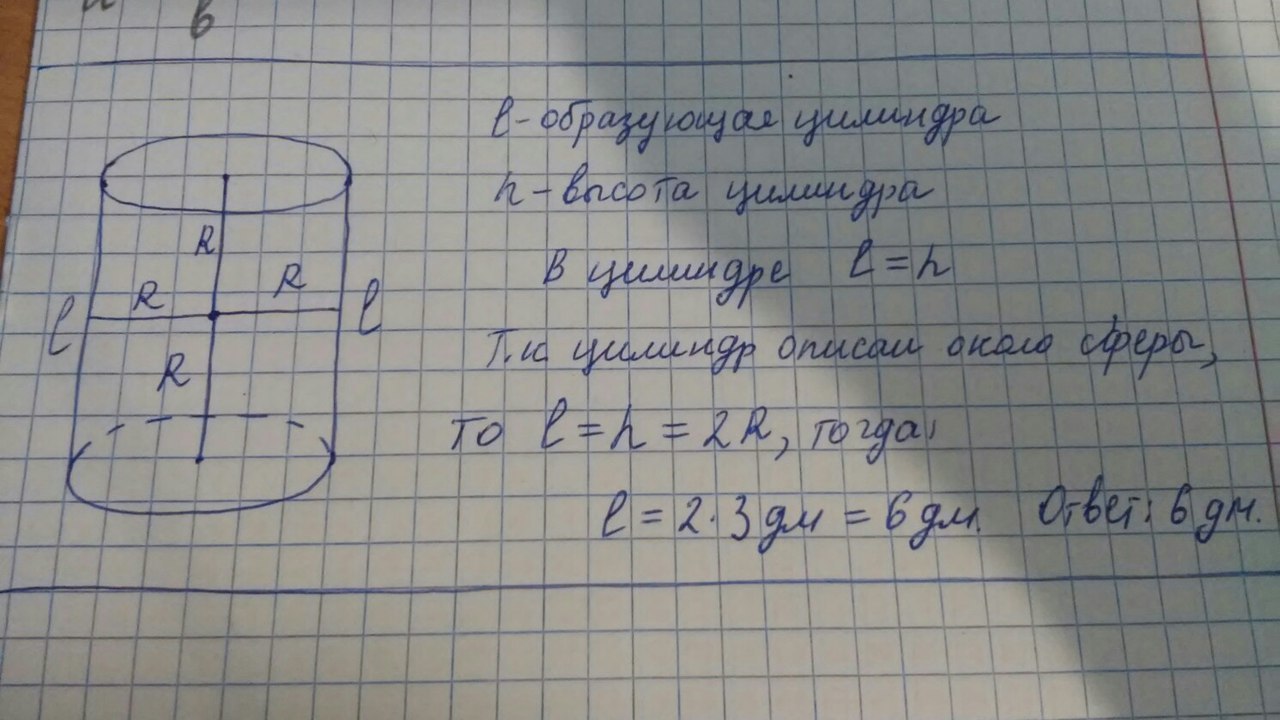 в
l - образующая цилиндра
h - высота цилиндра
В цилиндре l = h
Т.к цилиндр описан около сферы,
то l = h = 2R, тогда:
l = 2·3 дм = 6 дм. Ответ: 6 дм.
R
R R
l l
R